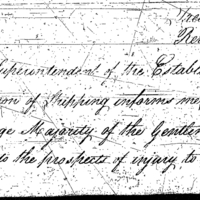 Superintendent of the Establ
on of Shipping informs me
ge Majority of the Gentle
to the prospects of injury to